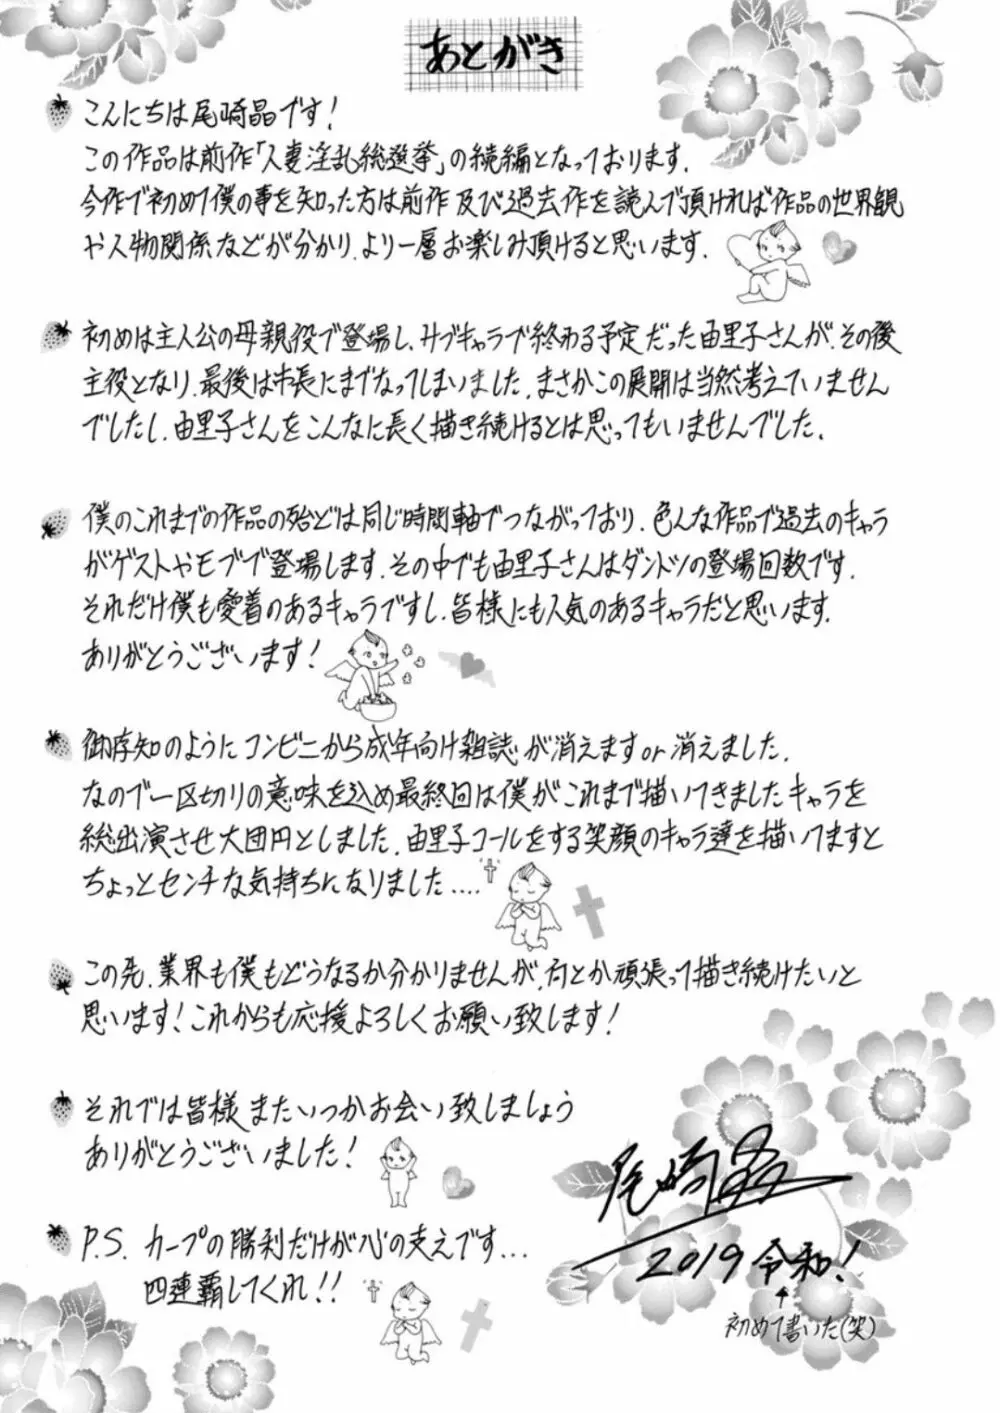 あとがき
こんにちは尾﨑晶です!
この作品は前作「人妻淫乱総選挙」の続編となっております.
今作で初めて僕の事を知った方は前作及び過去作を読んで頂ければ作品の世界観
や人物関係などが分かり.より一層お楽しみ頂けると思います.
初めは主人公の母親役で登場し、サブキャラで終わる予定だった由里子さんが.その後
主役となり.最後は市長にまでなってしまいました.まさかこの展開は当然考えていません
でしたし.由里子さんをこんなに長く描き続けるとは思ってもいませんでした.
僕のこれまでの作品の殆どは同じ時間軸でつながっており.色んな作品で過去のキャラ
がゲストやモブで登場します.その中でも由里子さんはダントツの登場回数です.
それだけ僕も愛着のあるキャラですし.皆様にも人気のあるキャラだと思います.
ありがとうございます!
御存知のようにコンビニから成年向け雑誌が消えますor消えました.
なので一区切りの意味を込め最終回は僕がこれまで描いてきましたキャラを
総出演させ大団円としました.由里子コールをする笑顔のキャラ達を描いてますと
ちょっとセンチな気持ちになりました....
この先.業界も僕もどうなるか分かりませんが.何とか頑張って描き続けたいと
思います!これからも応援よろしくお願い致します!
それでは皆様またいつかお会い致しましょう
ありがとうございました!
P.S. カープの勝利だけが心の支えです...
四連覇してくれ!!
尾﨑晶
2019令和!
初めて書いた(笑)